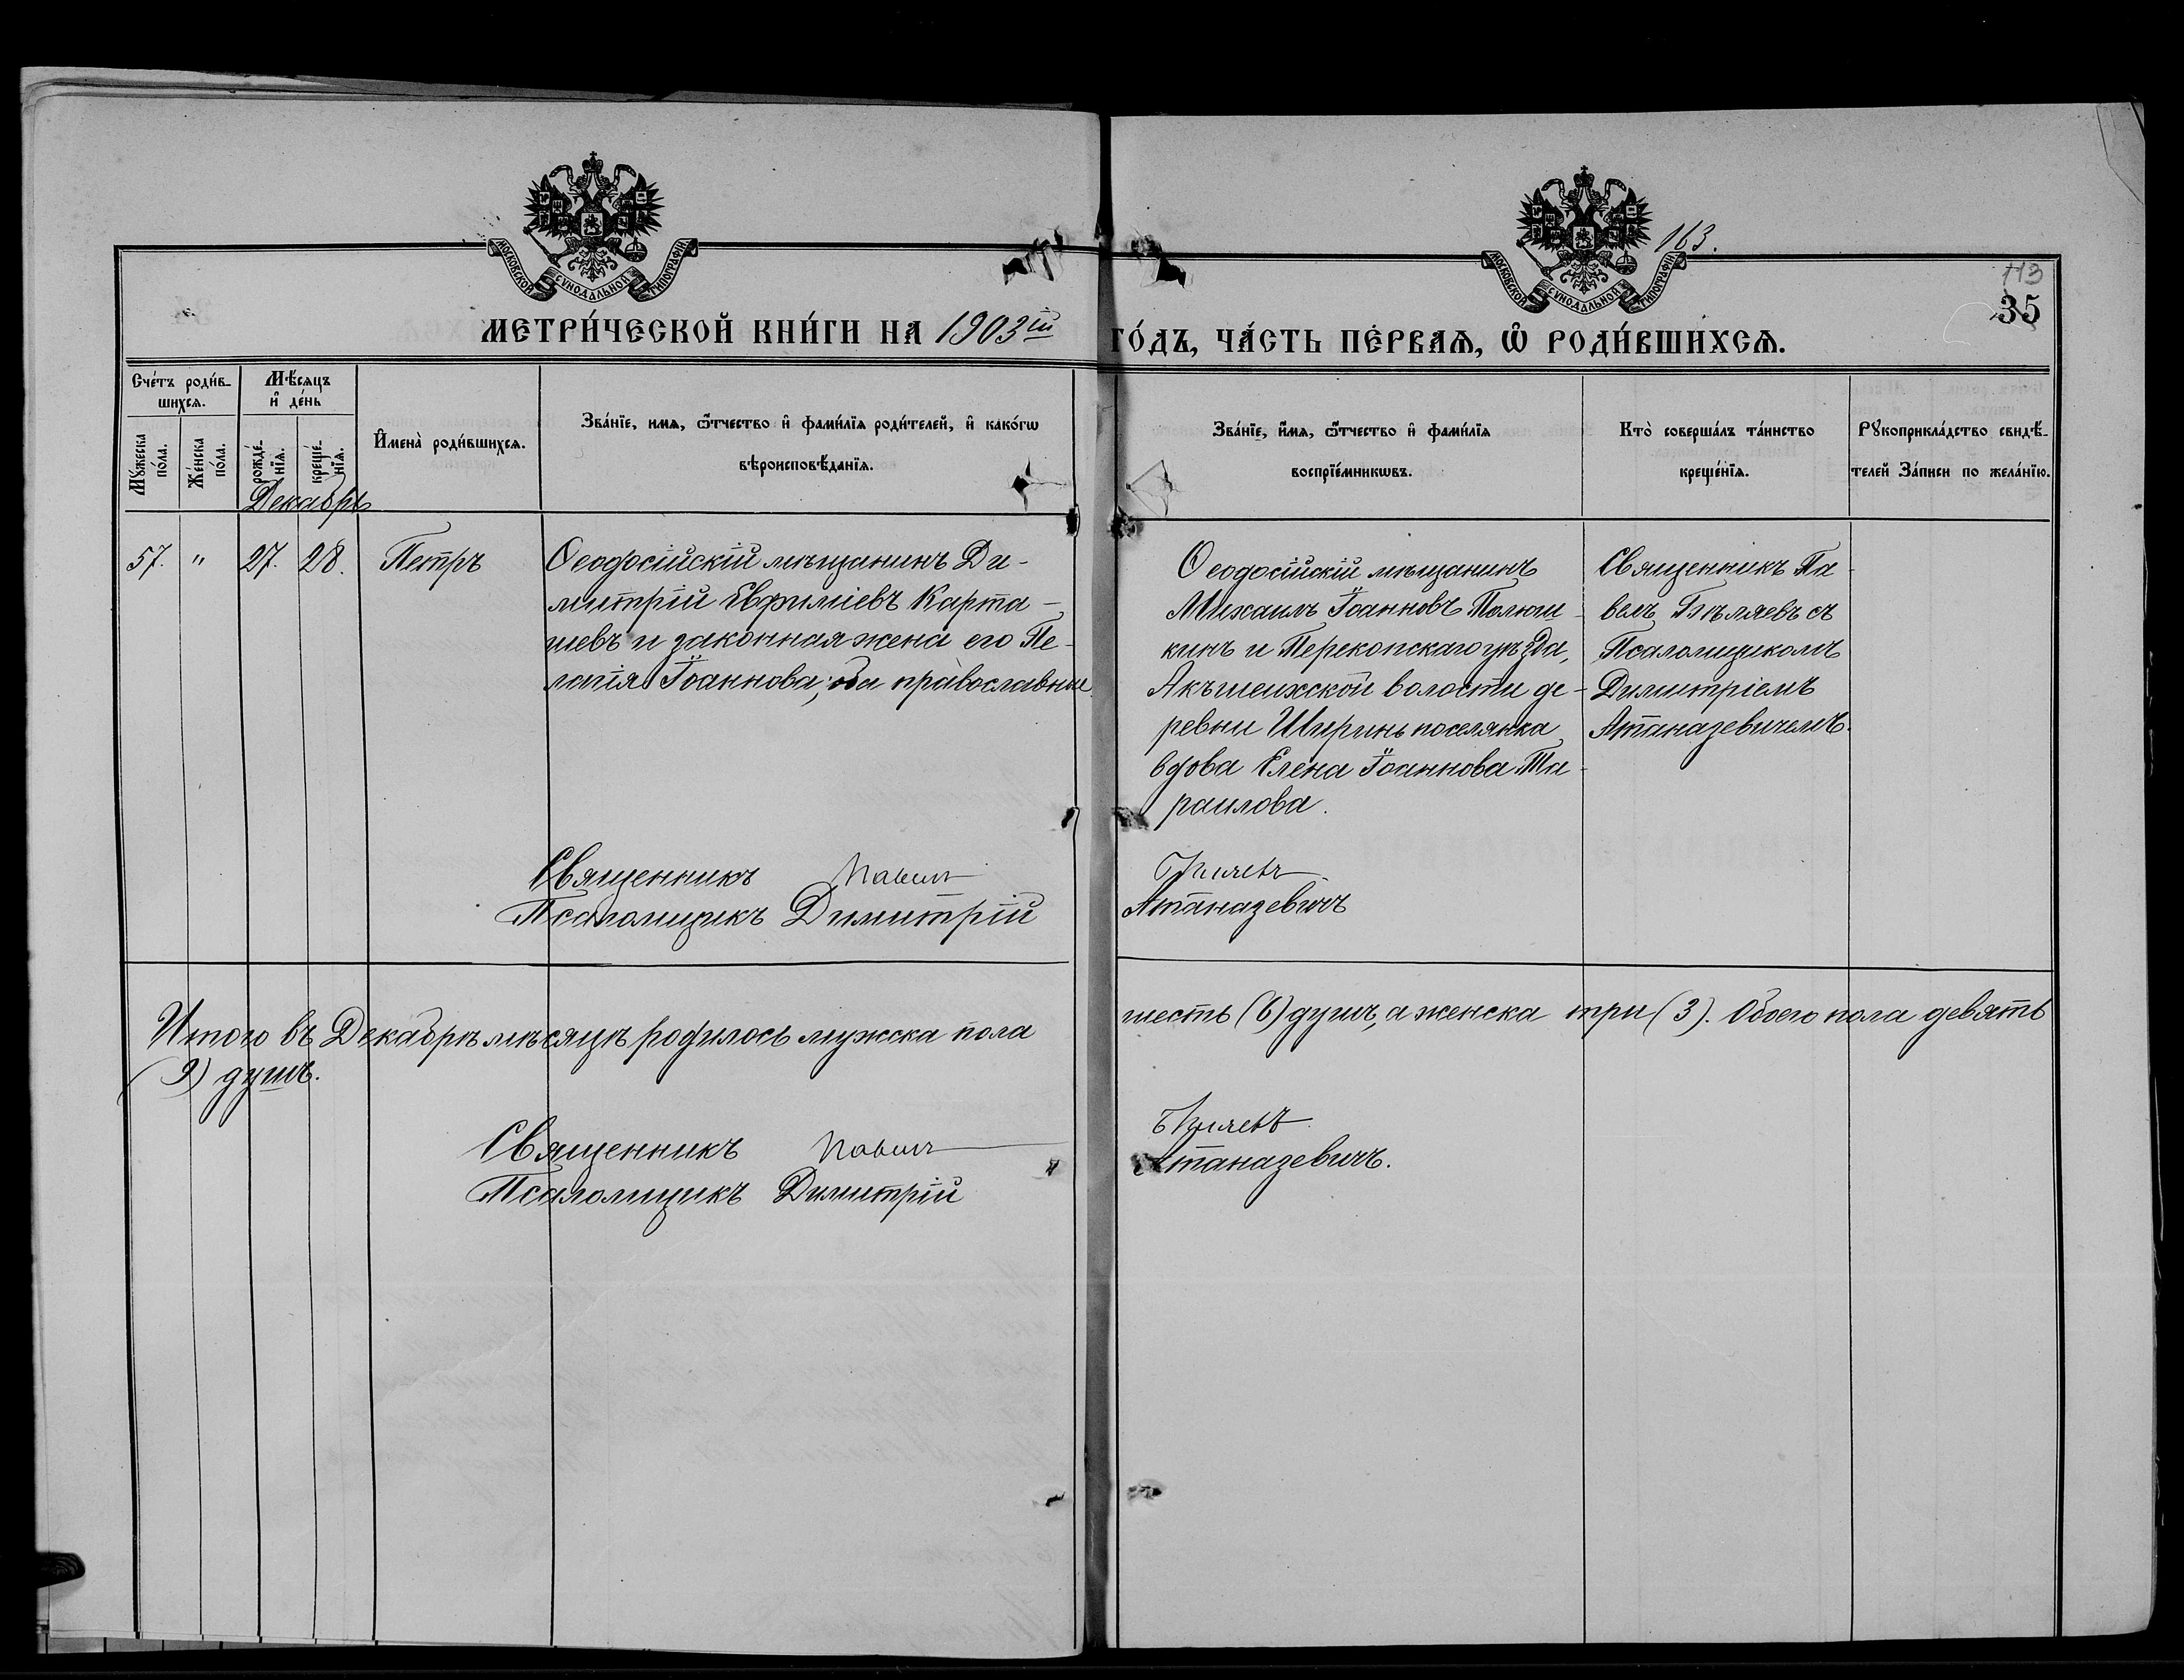 МОСКОВСКОЙ СѴНОДАЛЬНОЙ ТИПОГРАФІИ
МОСКОВСКОЙ СѴНОДАЛЬНОЙ ТИПОГРАФІИ
163.
113
35
МЕТРИ́ЧЕСКОЙ КНИ́ГИ НА 1903ій ГО́ДЪ, ЧА́СТЬ ПЕ́РВАЯ, Ѡ҆ РОДИ́ВШИХСЯ.
Сче́тъ роди́в-
шихся.
Мѣ́сяцъ
и҆ де́нь
Мꙋ́жеска
по́ла.
Же́нска
по́ла.
рожде́-
нїя.
креще́-
нїя.
И҆мена̀ роди́вшихся.
Зва́нїе, имя, ѻ҆́тчество и҆ фами́лїя роди́телей, и҆ како́гѡ
вѣроисповѣ́данїя.
Зва́нїе, и҆́мя, ѻ҆́тчество и҆ фами́лїя
воспрїе́мникѡвъ.
Кто̀ соверша́лъ та́инство
креще́нїя.
Рꙋкоприкла́дство свидѣ́-
телей За́писи по жела́нїю.
Декабрь
57. " 27. 28. Петръ
Ѳеодосійскій мѣщанинъ Ди-
митрій Евфиміевъ Карта-
шевъ и законная жена его Пе-
лагія Іоаннова; оба православные.
Ѳеодосійскій мѣщанинъ
Михаилъ Іоанновъ
кинъ и Перекопскаго уѣзда,
Акъшеихской волости де-
ревни Ширинь поселянка
вдова Елена Іоаннова Та-
раилова.
Священникъ Па-
велъ Бѣляевъ съ
Псаломщикомъ
Димитріемъ
Атаназевичемъ.
Священникъ Павелъ Бѣляевъ
Псаломщикъ Димитрій Атаназевичъ
Итого въ Декабрѣ мѣсяцѣ родилось мужска пола шесть (6) душъ, а женска три (3). Обоего пола девять
(9) душъ.
Священникъ Павелъ Бѣляевъ
Псаломщикъ Димитрій Атаназевичъ.